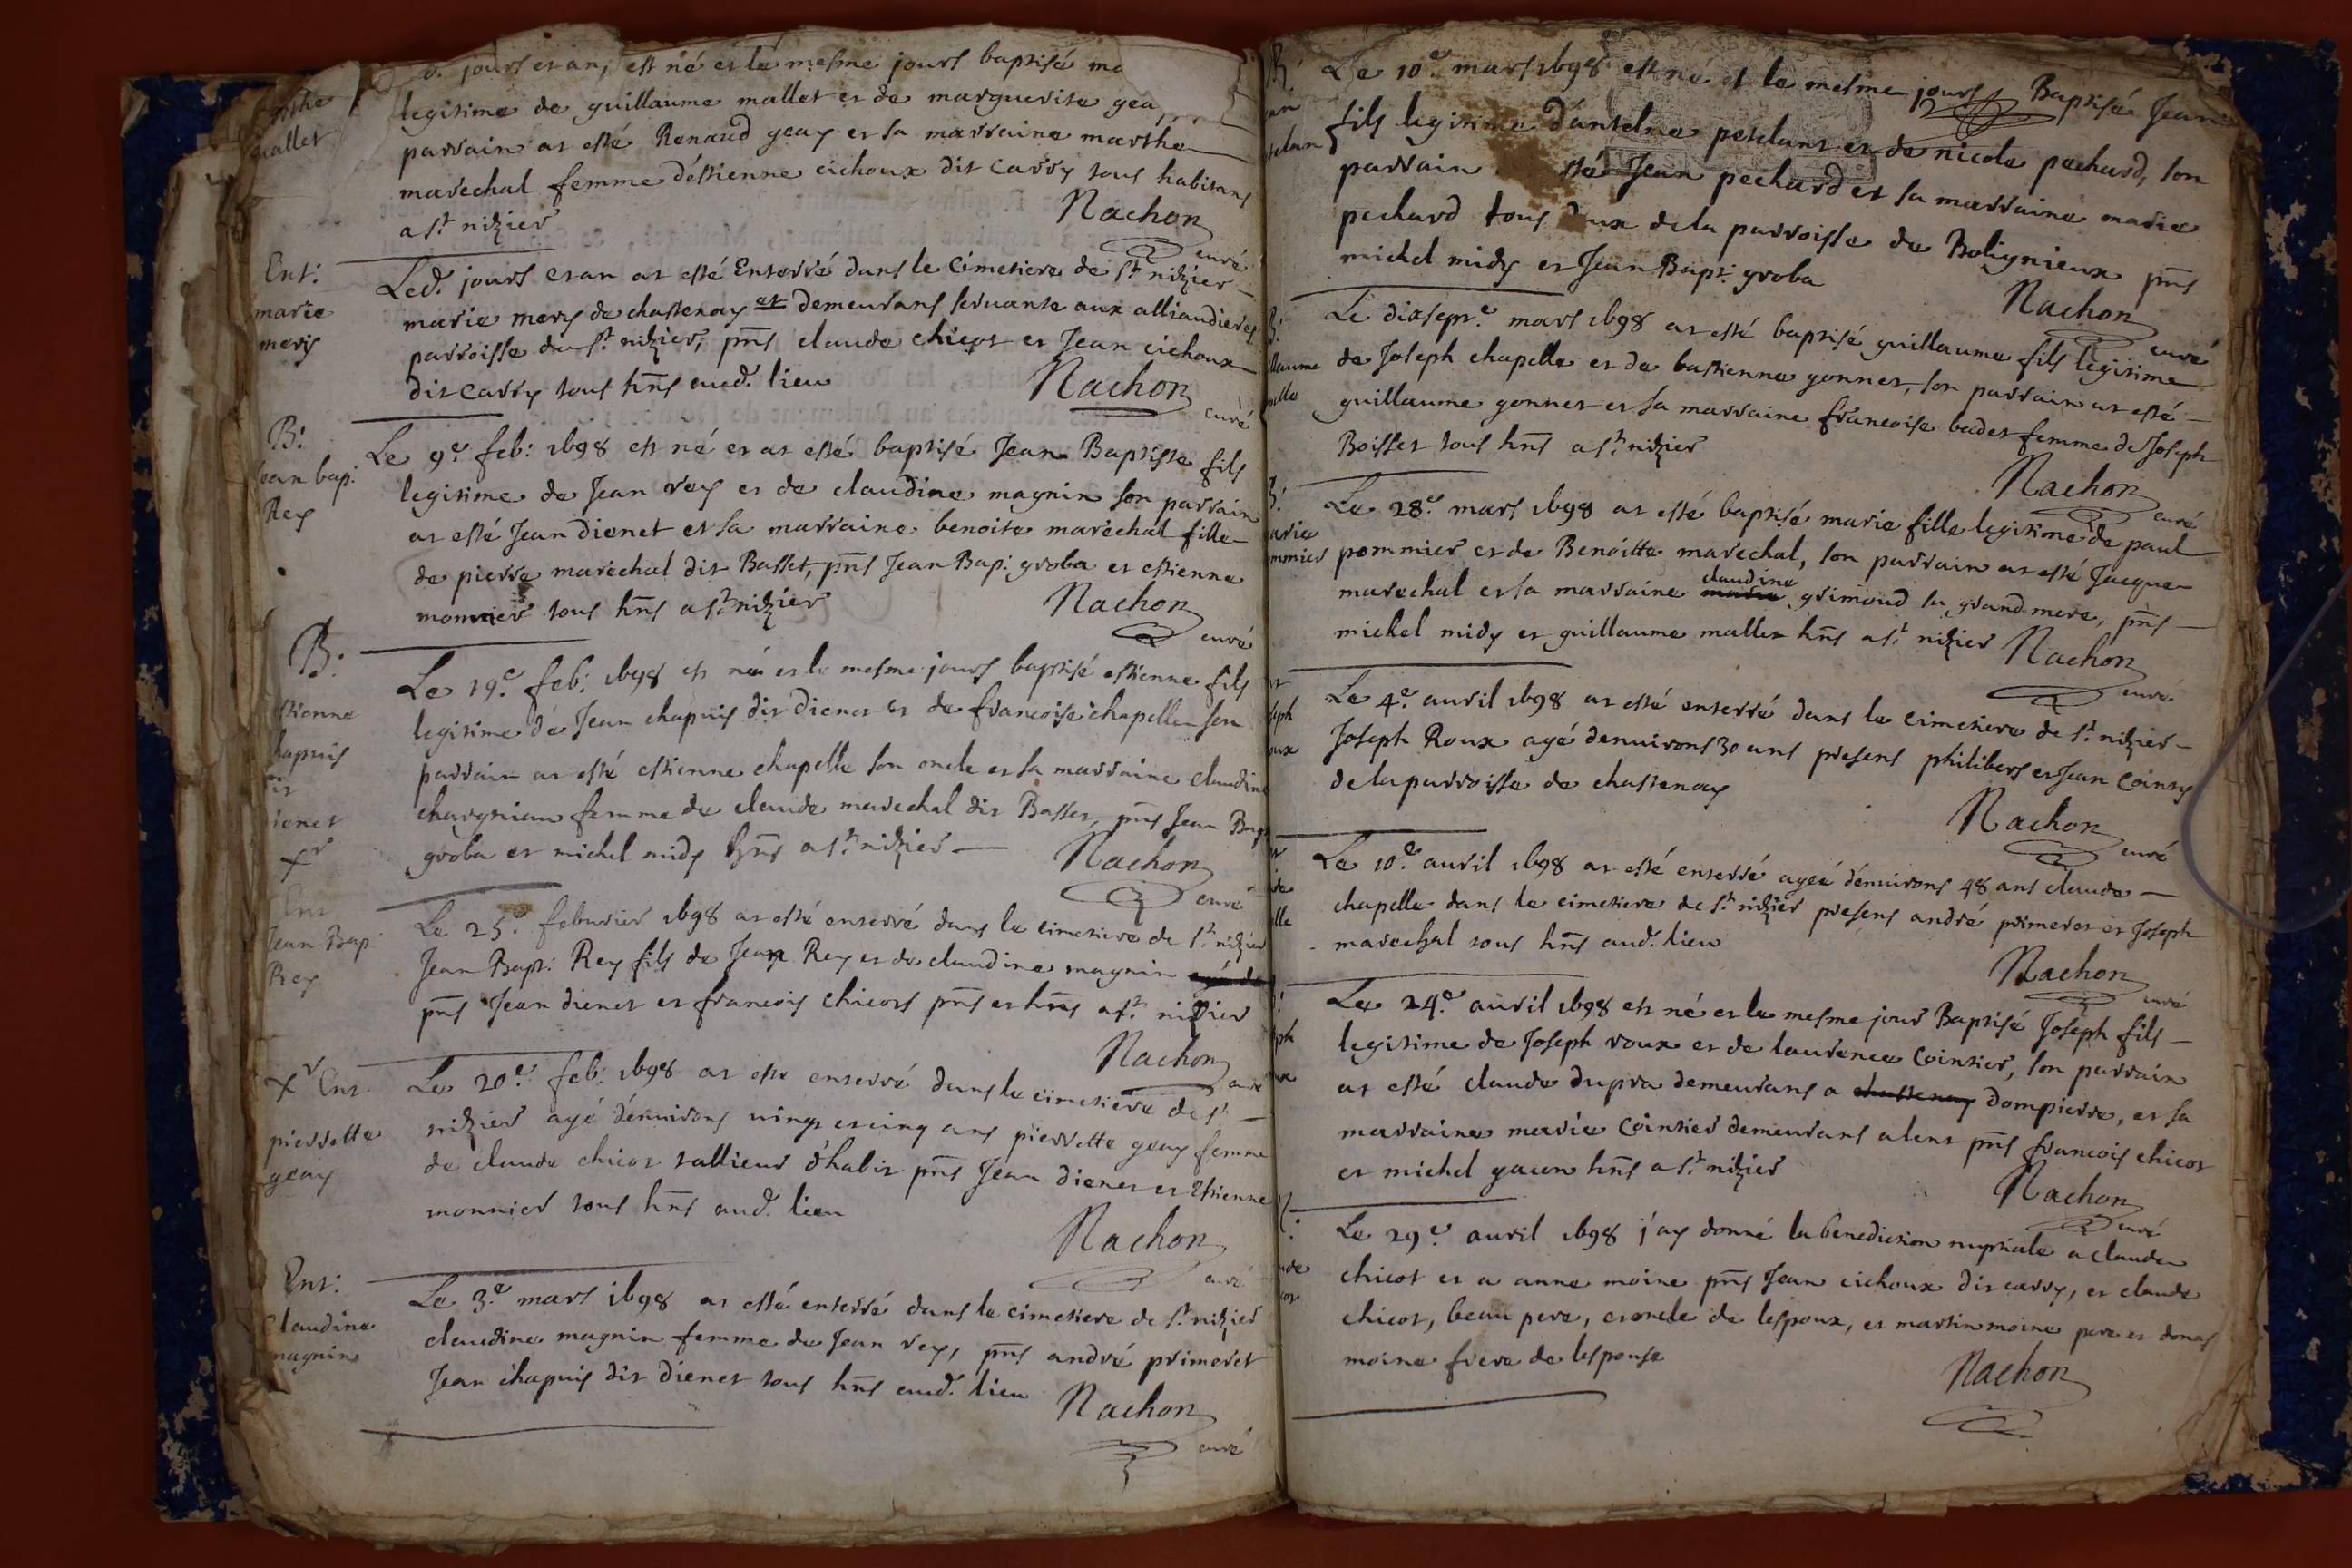 jours et an, est né et le mesme jours baptisé
legitime de guillaume mallet et de marguerite gea
parrain at esté Renaud geay et sa marraine marthe
marechal femme d'éstienne cichoux dit carry tous habitans
a st. nizier
Nachon
curé
mallet
Ent:
marie
mery
Led. jours et an at esté Enterré dans le cimetiere de st. nizier
marie mery de chastenay et demeurans servante aux alliandieres
parroisse de st. nizier, pnts claude chicot et Jean cichoux
dit carry tous hnts aud. lieu
Nachon
curé
B:
Jean bap:
Rey
Le 9e. feb: 1698 est né et at esté baptisé Jean Baptiste fils
legitime de Jean rey et de claudine magnin son parrain
at esté Jean dienet et sa marraine benoite maréchal fille
de pierre maréchal dit Basset, pnts Jean Bap: groba et estienne
monnier tous hnts a st. nizier
Nachon
curé
B:
stienne
hapuis
dienet
Le 19e. feb: 1698 est né et le mesme jours baptisé estienne fils
legitime de Jean chapuis dit Dienet et de francoise chapelle son
parrain at esté estienne chapelle son oncle et sa marraine claudine
chargniau femme de claude marechal dit Basset, pnts Jean Bap
groba et michel midy hnts a st. nizier
Nachon
curé
Ent
Jean Bap:
Rey
Le 25e. febvrier 1698 at esté enterré dans le cimetiere de st. nizier
Jean Bapt: Rey fils de Jean Rey et de claudine magnin
pnts Jean dienet et francois chicot pnts et hnts a st. nizier
Nachon
curé
Ent
pierrette
geay
Le 20e. feb: 1698 at este enterré dans le cimetiere de st.
nizier agé dénvirons vingt et cinq ans pierrette geay femme
de claude chicot tallieur d'habit pnts Jean dienet et Etienne
monnier tous hnts aud. lieu
Nachon
curé
Ent:
Claudine
magnin
Le 3e. mars 1698 at esté enterré dans le cimetiere de st. nizier
claudine magnin femme de Jean rey, pnts andré primeret
Jean chapuis dit dienet tous hnts aud. lieu
Nachon
curé
Le 10e. mars 1698 est né et le mesme jours Baptisé Jean
fils legitime d'anselme peselant et de nicole pechard, son
parrain esté Jean pechard et sa marraine marie
pechard tous deux de la parroisse de Bolignieux pnts
michel midy et Jean Bapt: groba
Nachon
curé
Le dixsept.e mars 1698 at esté baptisé guillaume fils legitime
de Joseph chapelle et de bastienne gonnet, son parrain at esté
guillaume gonnet et sa marraine francoise badet femme de Joseph
Boisset tous hnts a st. nizier
Nachon
curé
Le 28e. mars 1698 at esté baptisé marie fille legitime de paul
pommier et de Benoitte marechal, son parrain at esté Jacque
marechal et sa marraine claudine grimoud sa grand mere, pnts
michel midy et guillaume mallet hnts a st. nizier
Nachon
curé
Le 4e. avril 1698 at esté enterré dans le cimetiere de st. nizier
Joseph Roux agé denvirons 30 ans presens philibert et Jean Cointy
de la parroisse de chastenay
Nachon
curé
Le 10e. avril 1698 at esté enterré agée dénvirons 48 ans claude
chapelle dans le cimetiere de st. nizier presens andré primeret et Joseph
marechal tous hnts aud. lieu
Nachon
curé
Le 24e. avril 1698 est né et le mesme jour Baptisé Joseph fils
legitime de Joseph roux et de laurence Cointier, son parrain
at esté claude dupra demeurans a chastenay dompierre, et sa
marraine marie Cointier demeurans a lent pnts francois chicot
et michel gacon hnts a st. nizier
Nachon
curé
Le 29e. avril 1698 j'ay donné la benediction nuptiale a claude
chicot et a anne moine pnts Jean cichoux dit carry, et claude
chicot, beau pere, et oncle de lespoux, et martin moine pere et
moine frere de lespouse
Nachon